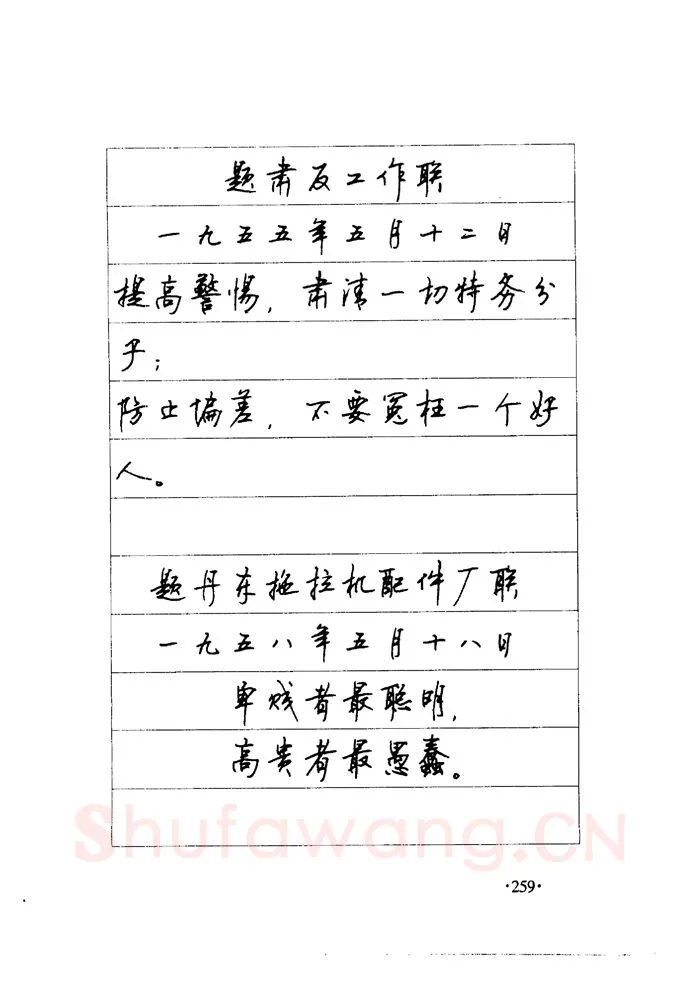 题肃反工作联
一九五五年五月十二日
提高警惕，肃清一切特务分
子；
防止偏差，不要冤枉一个好
人。
题丹东拖拉机配件厂联
一九五八年五月十八日
卑贱者最聪明，
高贵者最愚蠢。
Shufawang.CN
·259·